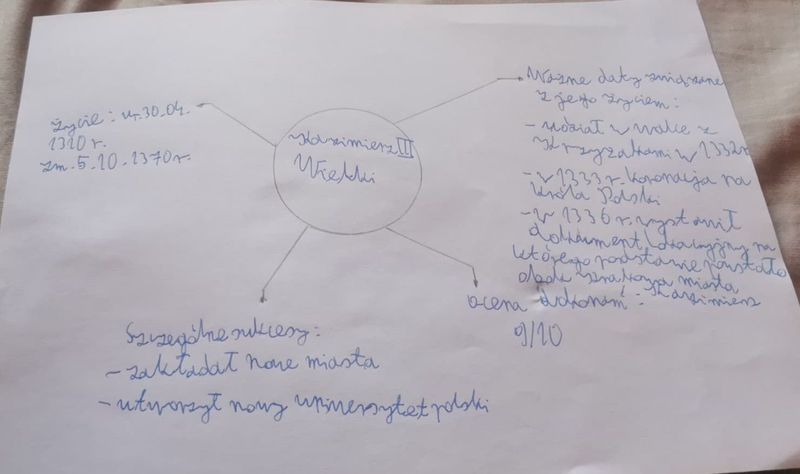 Kazimierz III
Wielki
życie: ur. 30.04.
1310 r.
zm. 5.10.1370 r.
Ważne daty związane
z jego życiem:
- udział w walce z
Krzyżakami w 1332r
- w 1333 r. koronacja na
króla Polski
- w 1336 r. wystawił
dokument lokacyjny na
którego podstawie powstało
obok Krakowa miasta
Kazimierz
ocena dokonań:
9/10
Szczególne sukcesy:
- zakładał nowe miasta
- utworzył nowy uniwersytet polski